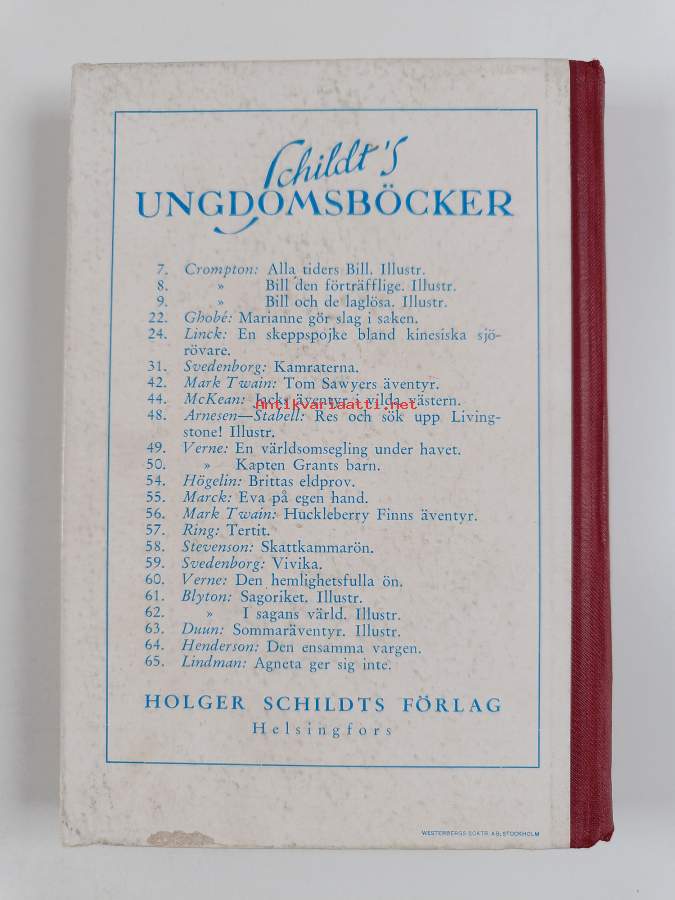 Schildt's
UNGDOMSBÖCKER
7. Crompton: Alla tiders Bill. Illustr.
8. » Bill den förträfflige. Illustr.
9. » Bill och de laglösa. Illustr.
22. Ghobé: Marianne gör slag i saken.
24. Linck: En skeppspojke bland kinesiska sjö-
rövare.
31. Svedenborg: Kamraterna.
42. Mark Twain: Tom Sawyers äventyr.
44. McKean: Jacks äventyr i vilda västern.
Antikvariaatti.net
48. Arnesen—Stabell: Res och sök upp Living-
stone! Illustr.
49. Verne: En världsomsegling under havet.
50. » Kapten Grants barn.
54. Högelin: Brittas eldprov.
55. Marck: Eva på egen hand.
56. Mark Twain: Huckleberry Finns äventyr.
57. Ring: Tertit.
58. Stevenson: Skattkammarön.
59. Svedenborg: Vivika.
60. Verne: Den hemlighetsfulla ön.
61. Blyton: Sagoriket. Illustr.
62. » I sagans värld. Illustr.
63. Duun: Sommaräventyr. Illustr.
64. Henderson: Den ensamma vargen.
65. Lindman: Agneta ger sig inte.
HOLGER SCHILDTS FÖRLAG
Helsingfors
WESTERBERGS BOKTR. AB, STOCKHOLM